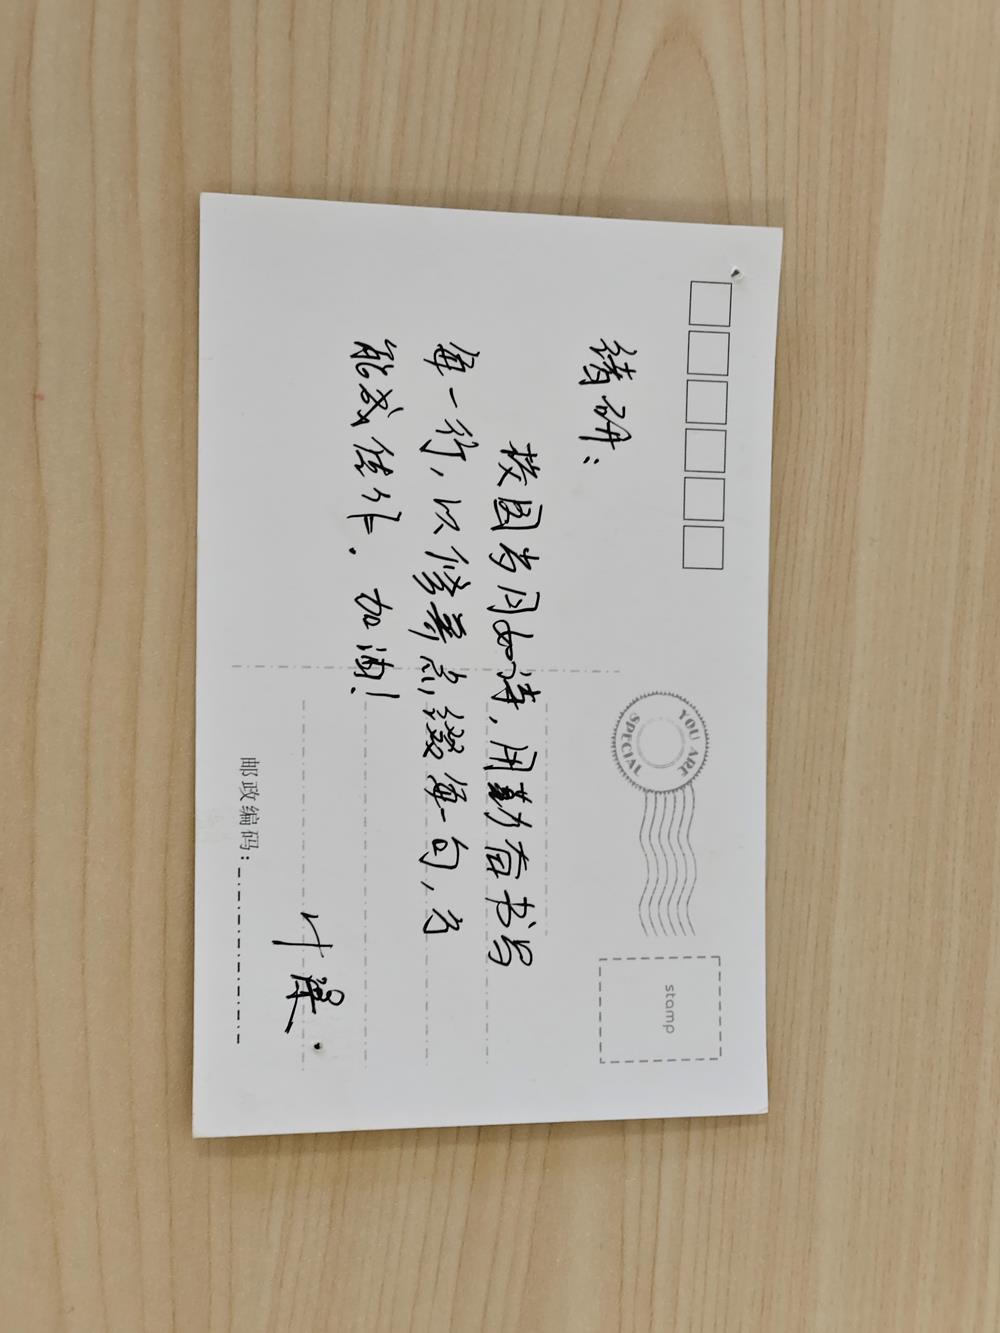 绪研：
校园岁月如诗，用勤奋书写
每一行，以修养点缀每一句，方
能成佳作。加油！
叶
YOU ARE
SPECIAL
stamp
邮政编码：